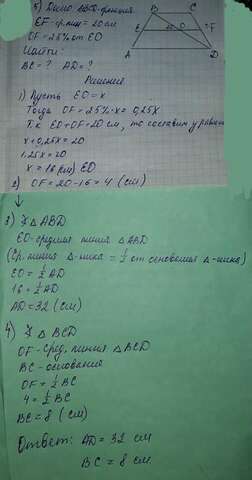 5) Дано ABCD-трапеция
EF-ср.лин = 20см
OF = 25% от EO
Найти:
BC = ? AD = ?
B C
E 20 O F
A D
Решение
1) Пусть EO = x
Тогда OF = 25%·x = 0,25x
Т.к EO+OF=20см, то составим уравн
x + 0,25x = 20
1,25x = 20
x = 16 (см) EO
2) OF = 20-16 = 4 (см)
3) ∆ ABD
EO-средняя линия ∆ABD
(Ср. линия ∆-ника = 1/2 от основания ∆-ника)
EO = 1/2 AD
16 = 1/2 AD
AD = 32 (см)
4) ∆ BCD
OF - сред. линия ∆BCD
BC - основание
OF = 1/2 BC
4 = 1/2 BC
BC = 8 (см)
Ответ: AD = 32 см
BC = 8 см